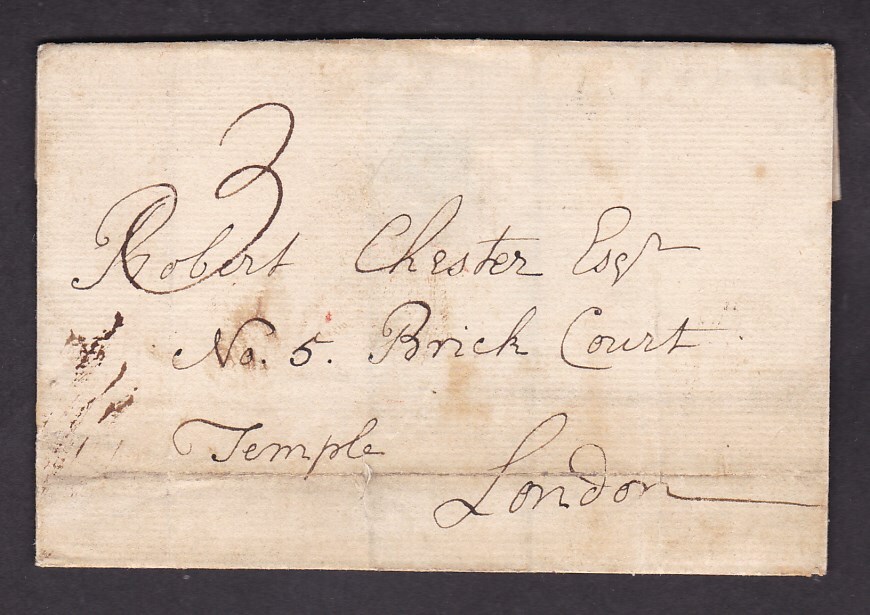 3
Robert Chester Esqr
No. 5. Brick Court
Temple
London